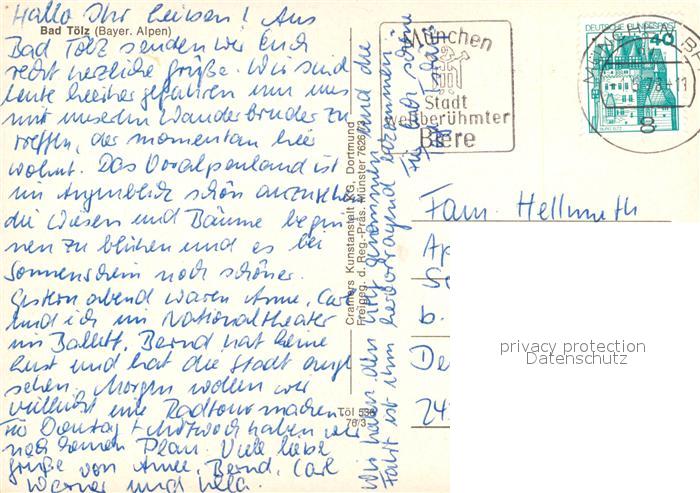 Hallo Ihr Lieben! Aus
Bad Tölz (Bayer. Alpen)
Bad Tölz senden wir Euch
recht herzliche Grüße. Wir sind
heute hierher gefahren um uns
mit unserm Wanderbruder zu
treffen, der momentan hier
wohnt. Das Voralpenland ist
im Augenblick schön anzusehen
die Wiesen und Bäume begin
nen zu blühen und es bei
Sonnenschein noch schöner.
Gestern abend waren Anne, Carl
und ich im Nationaltheater
im Ballett. Bernd hat keine
Lust und hat die Stadt ange
sehen. Morgen wollen wir
vielleicht eine Radtour machen
Für Dienstag + Mittwoch haben wir
noch keinen Plan. Viele liebe
Grüße von Anne, Bernd, Carl
Werner und
Wir haben den Zug genommen und die
Fahrt ist ihm hervorragend bekommen
Cramers Kunstanstalt KG, Dortmund
Freigeg. d. Reg.-Präs. Münster
Töl 536
76/3
München
Stadt
weltberühmter
Biere
DEUTSCHE BUNDESPOST
40
8
Fam. Hellmuth
b.
De
24
privacy protection
Datenschutz